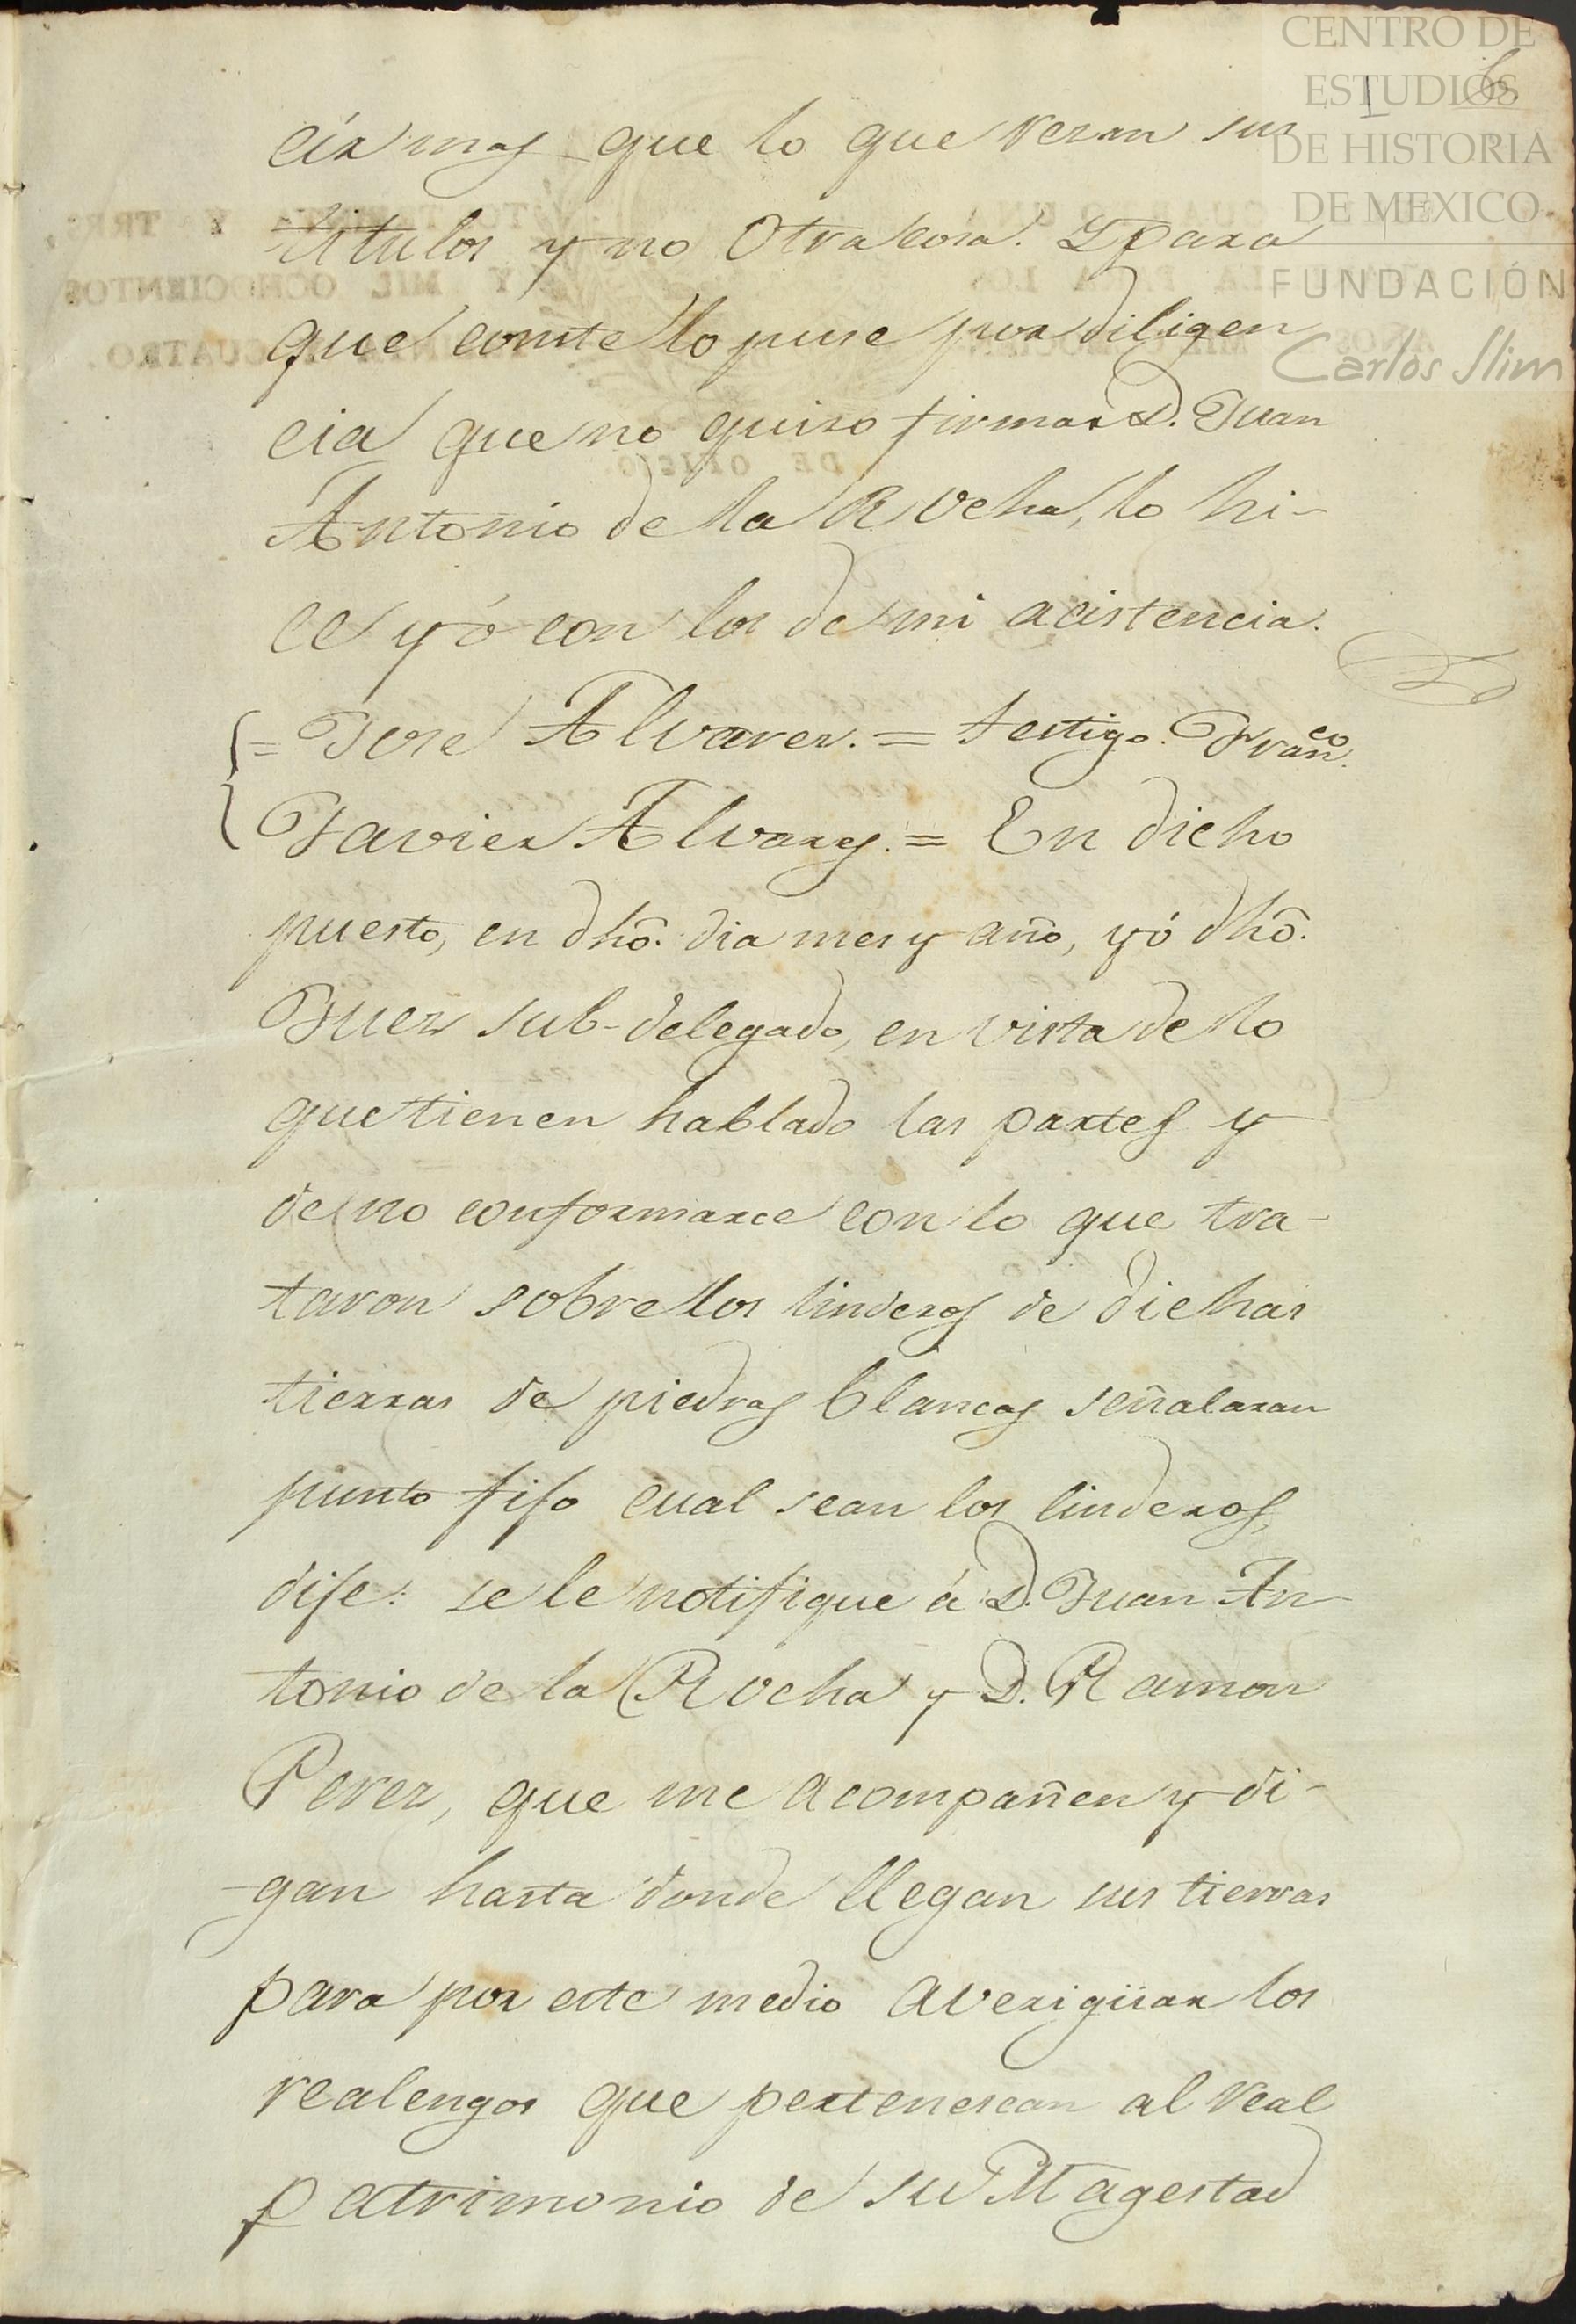 CENTRO DE
ESTUDIOS
DE HISTORIA
DE MEXICO
FUNDACIÓN
Carlos Slim
6
cia mas que lo que rezan sus
titulos y no Otra cosa. Y para
que conste lo puse por diligen
cia que no quiso firmar D. Juan
Antonio de la Rocha, lo hi-
ce yó con los de mi acistencia.
= Jose Alvares. = testigo. Fran.co
Javier Alvares. = En dicho
puesto, en dhõ. dia mes y año, yó dhõ.
Juez sub-delegado, en vista de lo
que tienen hablado las partes y
de no conformarce con lo que tra-
taron sobre los linderos de dichas
tierras de piedras blancas señalaran
punto fifo cual sean los linderos,
dife: se le notifique á D. Juan An-
tonio de la Rocha y D. Ramon
Perez, que me acompañen y di-
-gan hasta donde llegan sus tierras
para por este medio averigüar los
realengos que pertenescan al real
patrimonio de su Magestad
DE OFICIO.